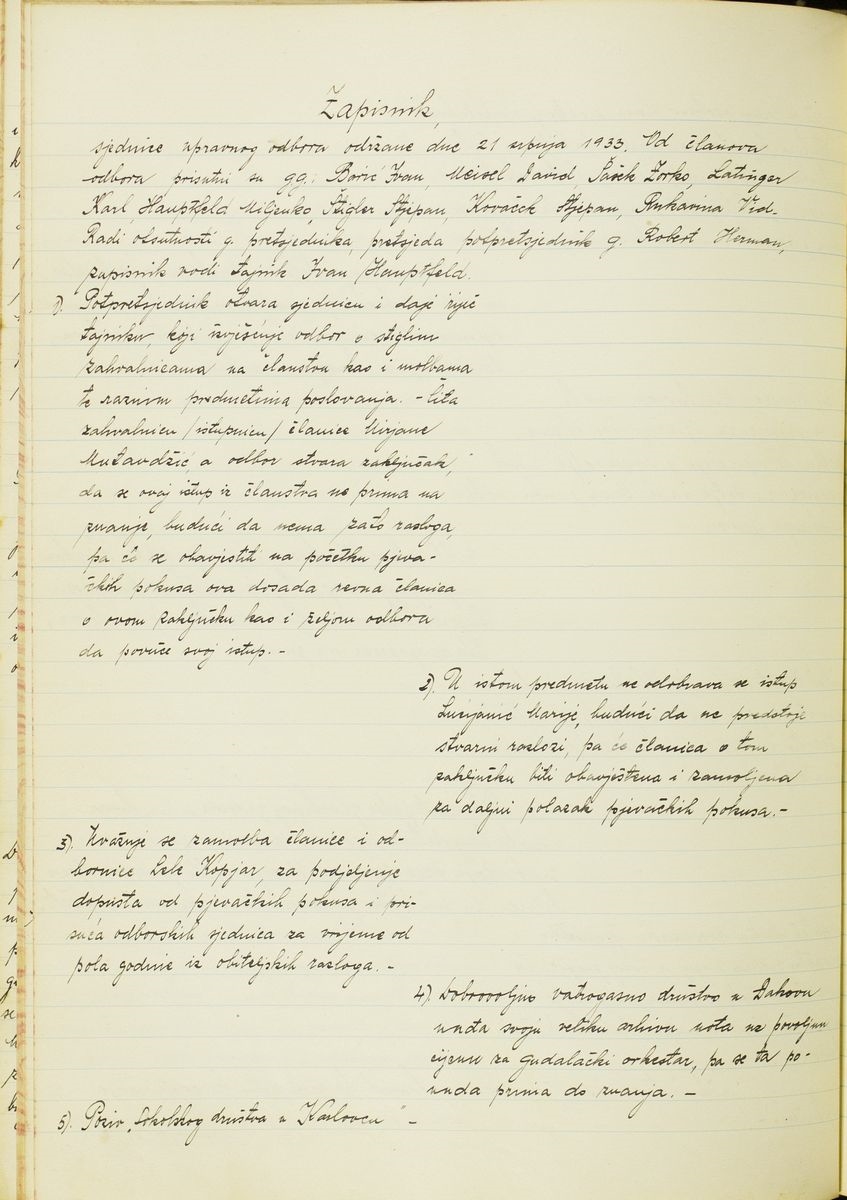 Zapisnik,
sjednice upravnog odbora održane dne 21 srpnja 1933. Od članova
odbora prisutni su gg: Borić Ivan, Meisel David Šašek Zorko, Latinger
Karl, Hauptfeld Miljenko, Štigler Stjepan, Kovaček Stjepan, Rukavina Vid-
Radi otsutnosti g. pretsjednika, pretsjeda potpretsjednik g. Robert Herman,
zapisnik vodi tajnik Ivan Hauptfeld.
1). Potpretsjednik otvara sjednicu i daje riječ
tajniku, koji izvješćuje odbor o stiglim
zahvalnicama na članstvu kao i molbama
te raznim predmetima poslovanja. - Čita
zahvalnicu /istupnicu/ članice Mirjane
Mutavdžić, a odbor stvara zaključak,
da se ovaj istup iz članstva ne prima na
znanje, budući da nema zato razloga,
pa će se obavjestiti na početku pjeva-
čkih pokusa ova dosada revna članica
o ovom zaključku kao i željom odbora
da povuče svoj istup. -
2). U istom predmetu ne odobrava se istup
Lucijanić Marije, budući da ne predstoje
stvarni razlozi, pa će članica o tom
zaključku biti obavještena i zamoljena
za daljni polazak pjevačkih pokusa. -
3). Uvažuje se zamolba članice i od-
bornice Lele Kopjar, za podjeljenje
dopusta od pjevačkih pokusa i pri-
suća odborskih sjednica za vrijeme od
pola godine iz obiteljskih razloga. -
4). Dobrovoljno vatrogasno društvo u Đakovu
nuđa svoju veliku arhivu nota uz povoljnu
cijenu za gudalački orkestar, pa se ta po-
nuda prima do znanja. -
5). Poziv „Sokolskog društva u Karlovcu" -